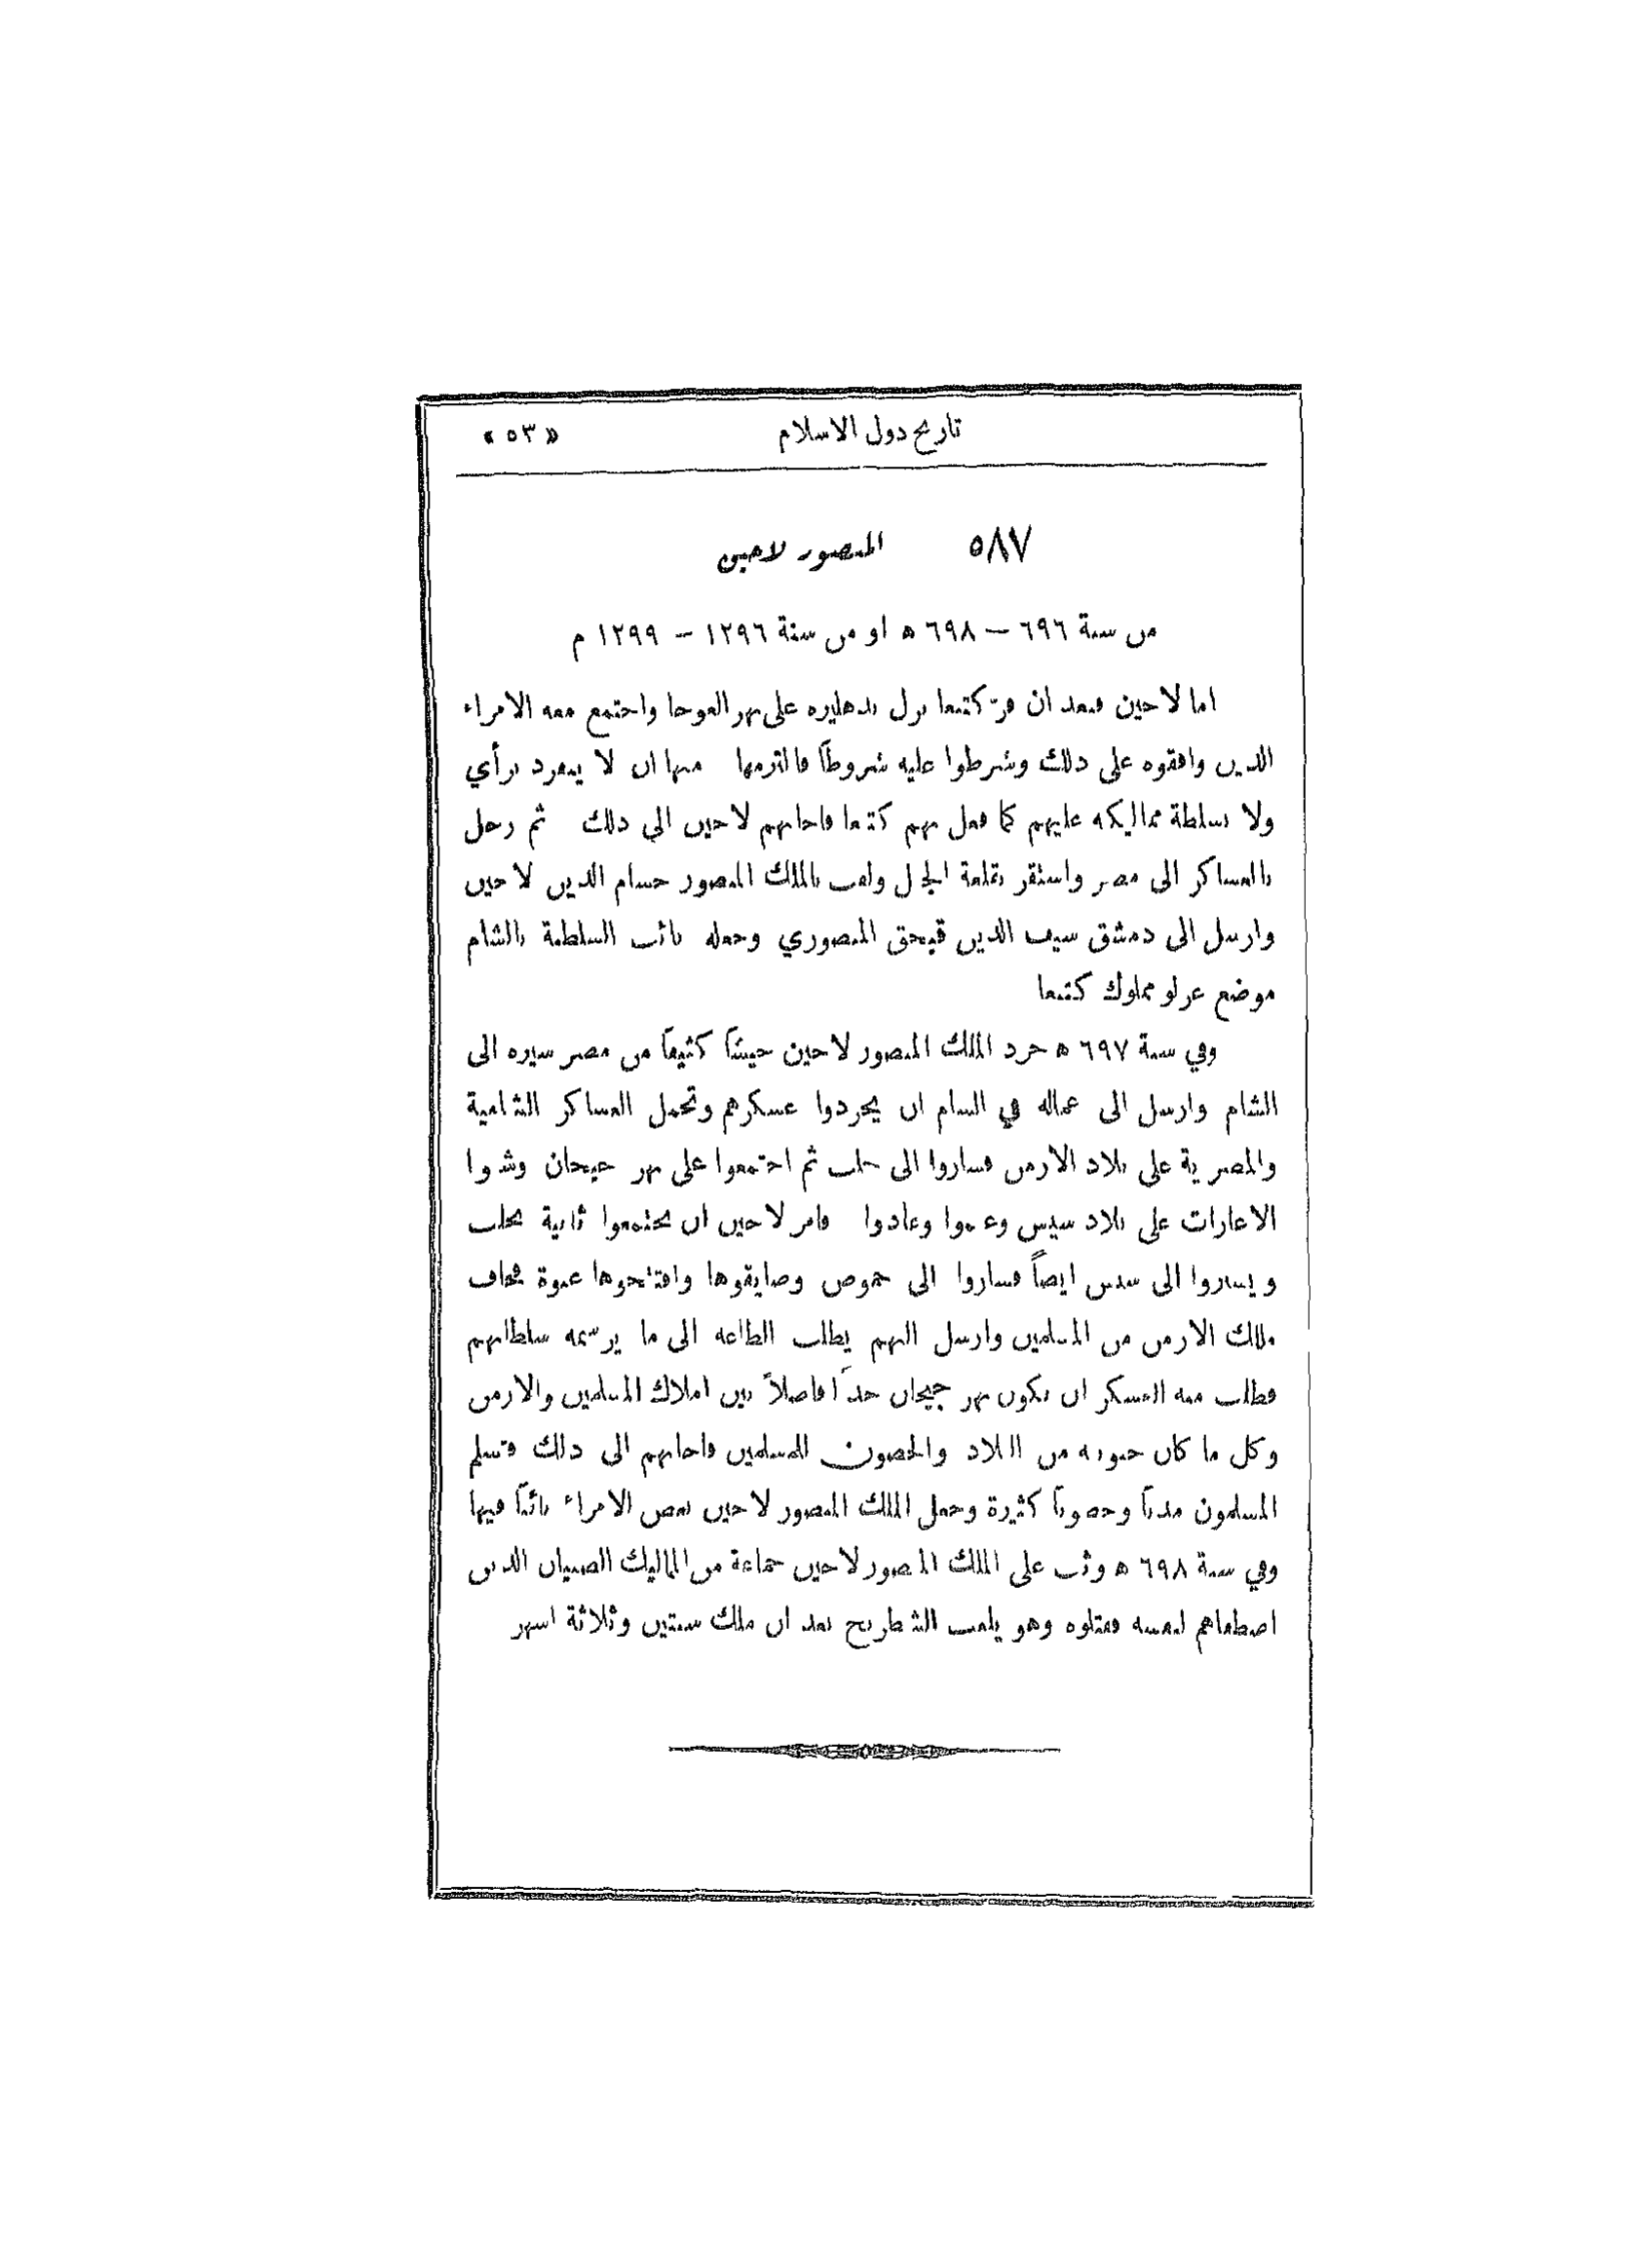 تاريخ دول الاسلام «٥٣»
٥٨٧ المنصور لاجين
من سنة ٦٩٦ — ٦٩٨ ه او من سنة ١٢٩٦ - ١٢٩٩ م
اما لاجين فبعد ان فرّ كتبغا نزل بدهليزه على نهر العوجا واجتمع معه الامراء
الذين وافقوه على ذلك وشرطوا عليه شروطاً فالتزمها منها ان لا ينفرد برأي
ولا بسلطة مماليكه عليهم كما فعل بهم كتبغا فاجابهم لاجين الى ذلك ثم رحل
بالعساكر الى مصر واستقر بقلعة الجبل ولقب بالملك المنصور حسام الدين لاجين
وارسل الى دمشق سيف الدين قبجق المنصوري وجعله نائب السلطنة بالشام
موضع غرلو مملوك كتبغا
وفي سنة ٦٩٧ ه جرد الملك المنصور لاجين جيشاً كثيفاً من مصر سيره الى
الشام وارسل الى عماله في الشام ان يجردوا عسكرهم وتحمل العساكر الشامية
والمصرية على بلاد الارمن فساروا الى حلب ثم اجتمعوا على نهر جيحان وشنوا
الاغارات على بلاد سيس وغنموا وعادوا فامر لاجين ان يجتمعوا ثانية بحلب
ويسيروا الى سيس ايضاً فساروا الى حموص وضايقوها وافتتحوها عنوة فخاف
ملك الارمن من المسلمين وارسل اليهم يطلب الطاعه الى ما يرسمه سلطانهم
فطلب منه العسكر ان يكون نهر جيحان حداً فاصلاً بين املاك المسلمين والارمن
وكل ما كان جنوبه من البلاد والحصون للمسلمين فاجابهم الى ذلك فتسلم
المسلمون مدناً وحصوناً كثيرة وجعل الملك المنصور لاجين بعض الامراء نائباً فيها
وفي سنة ٦٩٨ ه وثب على الملك المنصور لاجين جماعة من المماليك الصبيان الذين
اصطفاهم لنفسه فقتلوه وهو يلعب الشطرنج بعد ان ملك سنتين وثلاثة اشهر